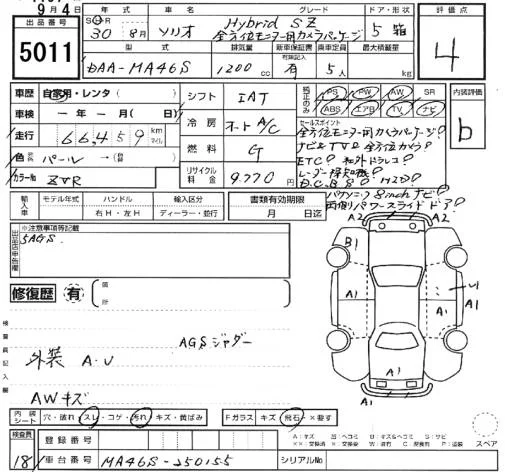 9月4日
出品番号
5011
年式
車名
グレード
ドア・形状
評価点
30年 8月
ソリオ
Hybrid SZ
全方位モニター用カメラパッケージ
5 箱
4
型式
排気量
新車保証書
乗車定員
最大積載量
DAA-MA46S
1200cc
有
5人
kg
車歴
自家用・レンタ( )
シフト
IAT
装備品純正のみ
PS
PW
AW
SR
ABS
エアB
TV
ナビ
内装評価
b
車検
一年一月( 日)
走行
66,459
km
マイル
冷房
オートA/C
セールスポイント
全方位モニター用カメラパッケージ!
ナビ&TV&全方位カメラ!
ETC! 社外ドラレコ!
レーダー探知機!
D.C.B.S! HID!
パナソニック 8inchナビ!
両側パワースライドドア!
色
パール→( )
燃料
G
カラーNo
ZVR
リサイクル料金
9.770円
輸入車
モデル年式
ハンドル
輸入区分
右H・左H
ディーラー・並行
書類有効期限
月 日迄
出品店申告欄
※注意事項等記載
5AGS.
修復歴
有
箇所
検査員記入欄
AGSジャダー
外装 A.U
AWキズ
A2
A2
B1
A1
A1
A1
U
A1
A1
内装シート
穴・破れ・スレ・コゲ・汚れ
キズ・黄ばみ
Fガラス
キズ・飛石・×要す
検査員
181
登録番号
車台番号
MA46S-250155
シリアルNo
A:キズ
B:ヘコミ
U:キズ&ヘコミ
S:サビ
スペア